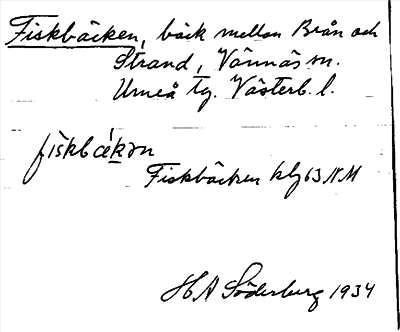 Fiskbäcken, bäck mellan Brån och
Strand, Vännäs sn.
Umeå tg. Västerb. l.
fiskbäkən
Fiskbäcken klg 63 N.M
H A Söderburg 1934